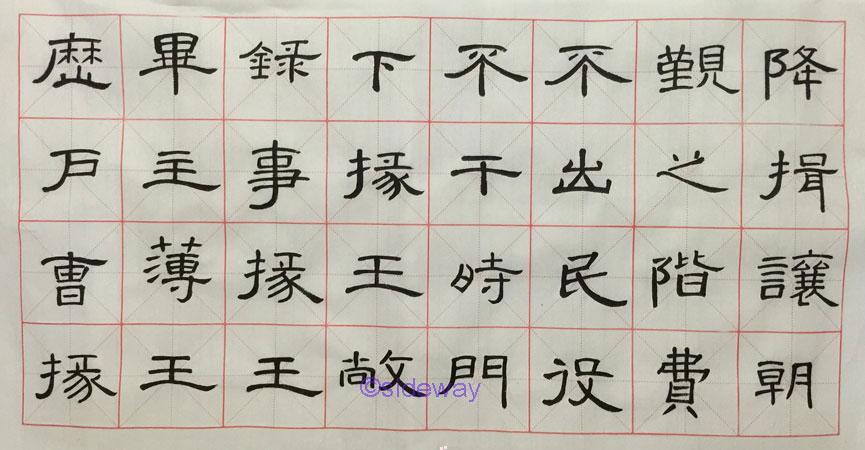 降揖讓朝
覲之階費
不出民役
不干時門
下掾王敞
録事掾王
畢主薄王
歴戸曹掾
©sideway